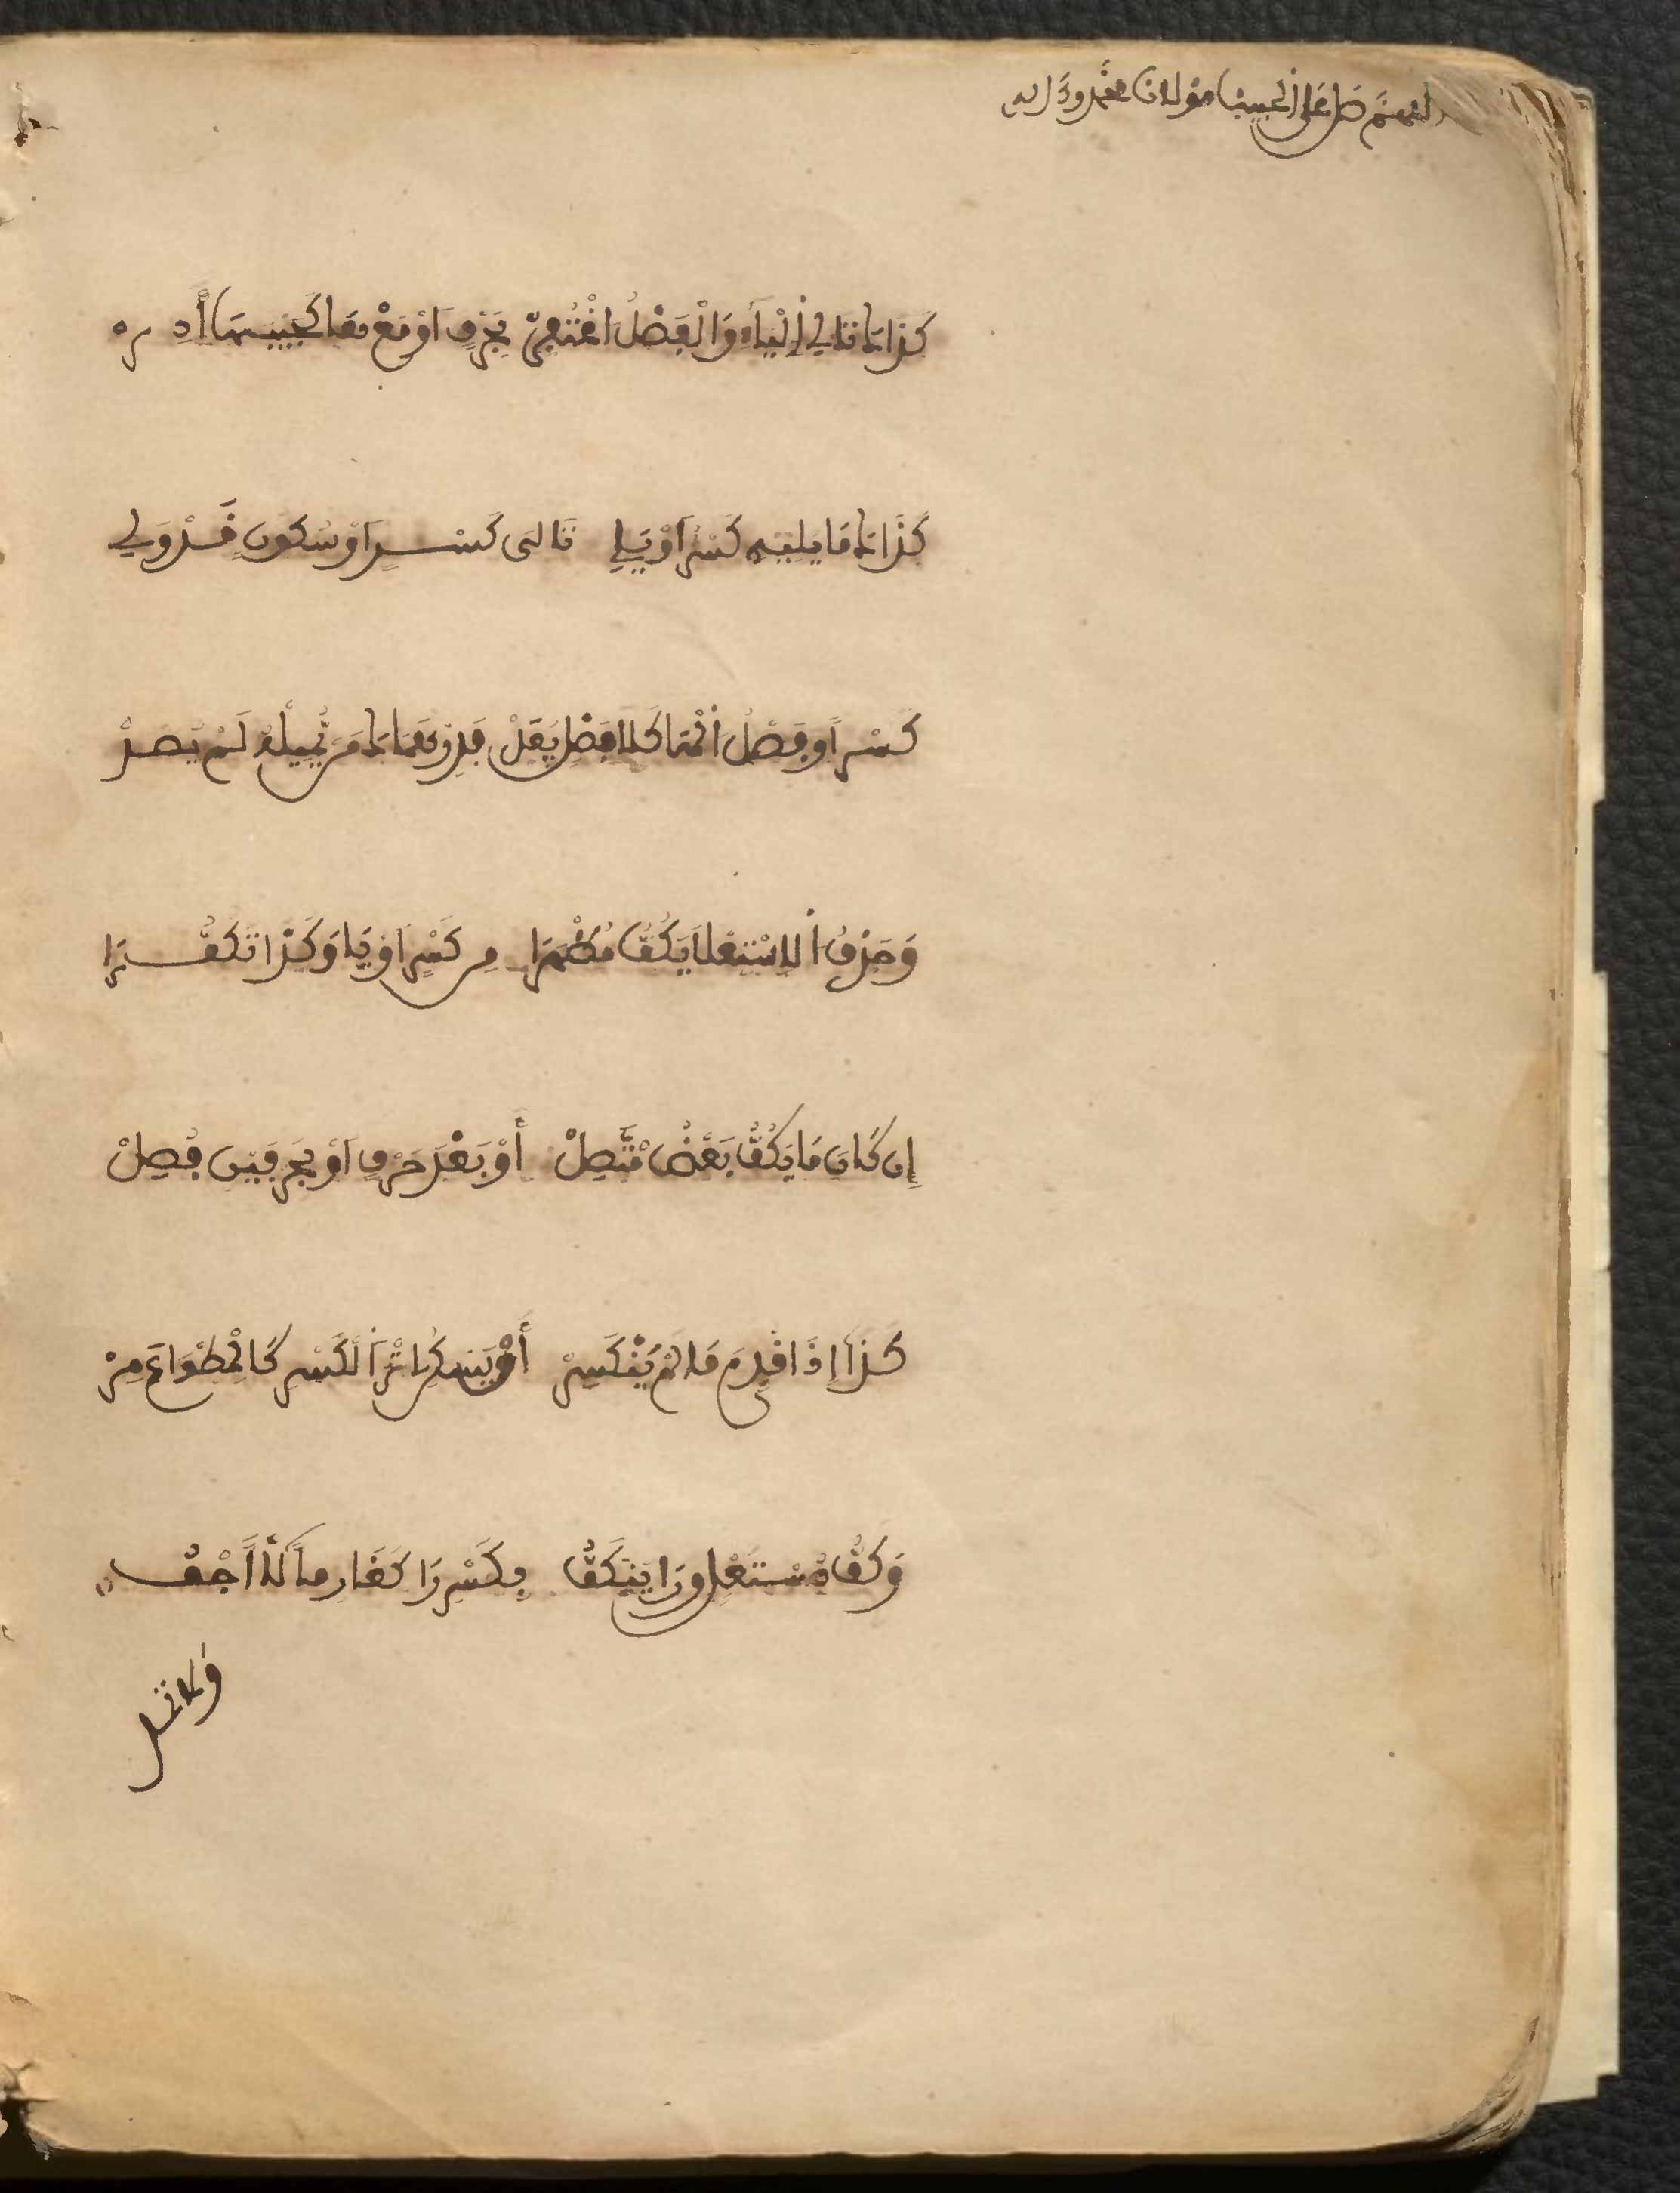 اللهم صل على الحبيب مولانا محمد وءاله
كَذَاكَ تَالِي اَلْيَاءِ وَالْفَصْلُ اغْتُفِرْ بِحَرْفٍ اَوْ مَعْ هَا كَجَيْبَهَا أَدِرْ
كَذَاكَ مَا يَلِيهِ كَسْرٌ اَوْ يَلِي تَالِىَ كَسْرٍ اَوْ سُكُونٍ قَدْ وَلِي
كَسْراً وَفَصْلُ الْهَا كَلَا فَصْلٍ يُعَدْ فَدِرْهَمَاكَ مَنْ يُّمِلْهُ لَمْ يُصَدْ
وَحَرْفُ الِاسْتِعْلَا يَكُفُّ مُظْهَرَا مِن كَسْرٍ اَوْ يَا وَكَذَا تَكُفُّ رَا
إِن كَانَ مَا يَكُفُّ بَعْدُ مُتَّصِلْ أَوْ بَعْدَ حَرْفٍ اَوْ بِحَرْفَيْنِ فُصِلْ
كَذَا إِذَا قُدِّمَ مَا لَمْ يَنْكَسِرْ أَوْ يَسْكُنِ اثْرَ الْكَسْرِ كَالْمِطْوَاعَ مِرْ
وَكَفُّ مُسْتَعْلٍ وَرَا يَنْكَفُّ بِكَسْرِ رَا كَغَارِماً لَا أَجْفُو
وَلَا تُمِلْ